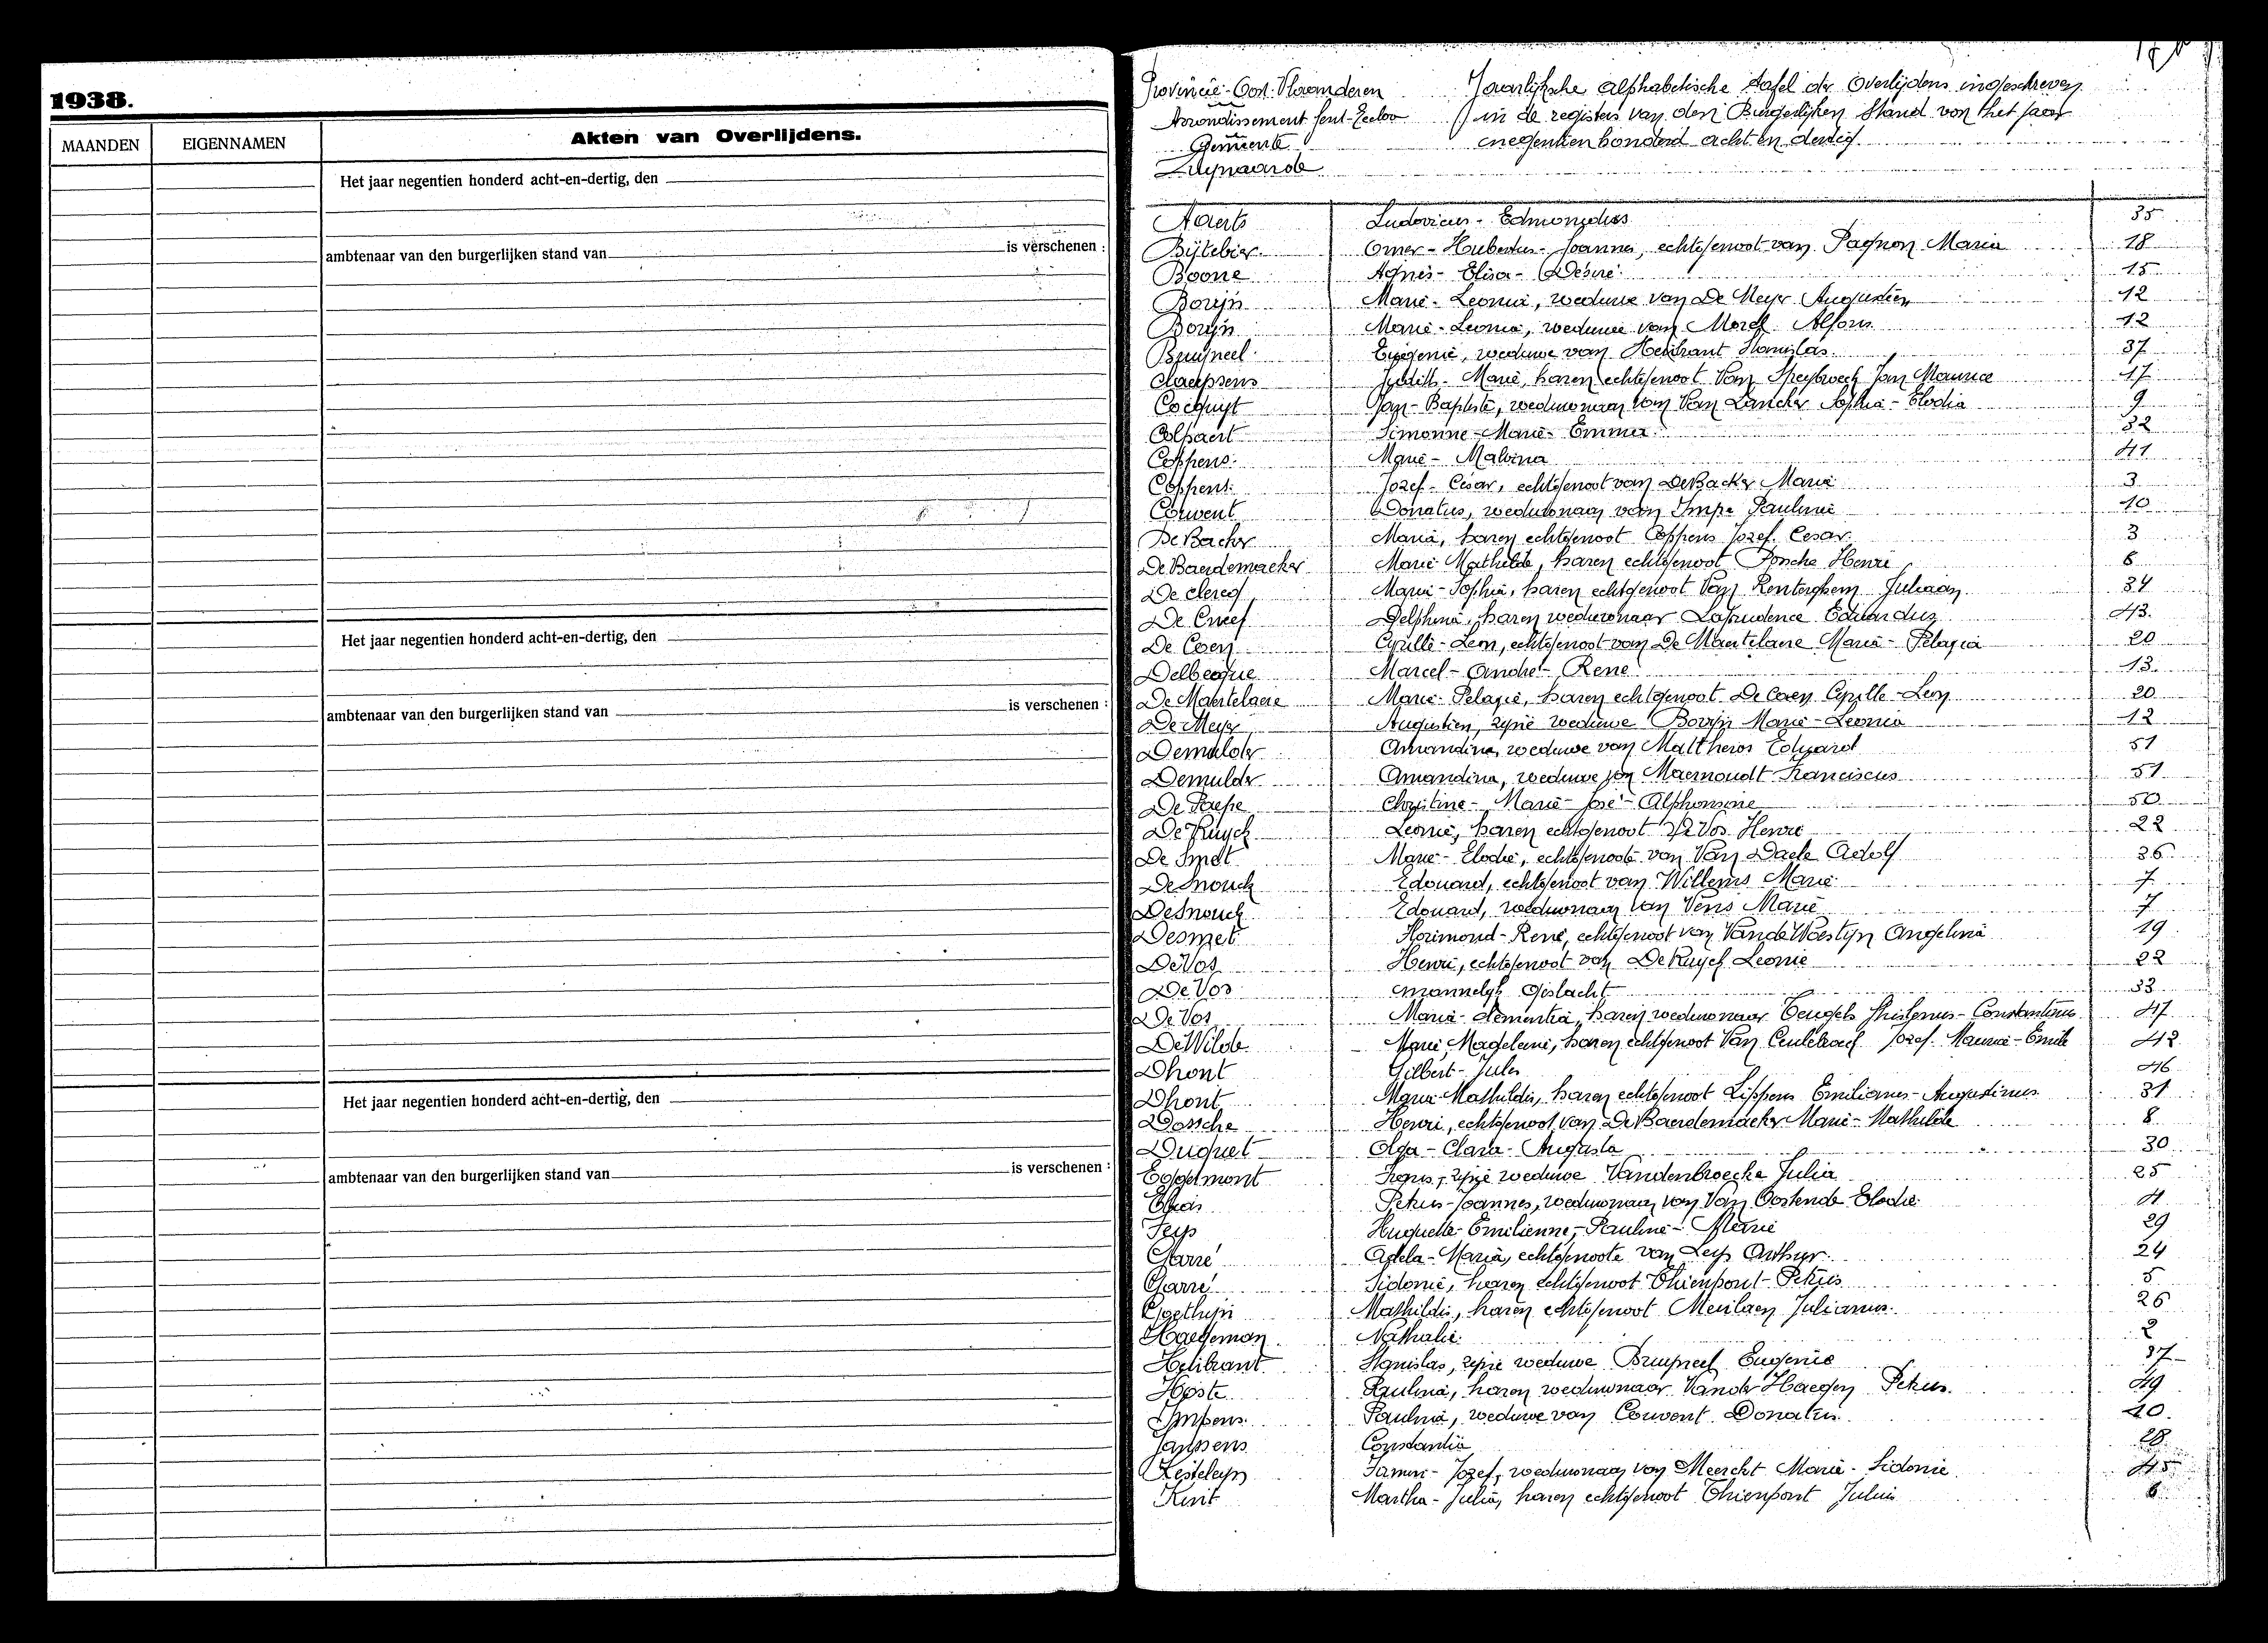 1938.
MAANDEN EIGENNAMEN Akten van Overlijdens.
Het jaar negentien honderd acht-en-dertig, den
ambtenaar van den burgerlijken stand van is verschenen :
Het jaar negentien honderd acht-en-dertig, den
ambtenaar van den burgerlijken stand van is verschenen :
Het jaar negentien honderd acht-en-dertig, den
ambtenaar van den burgerlijken stand van is verschenen :
Provincie Oost-Vlaanderen Jaarlijksche alphabetische tafel der Overlijdens ingeschreven
Arrondissement Gent-Eecloo in de registers van den Burgerlijken Stand voor het jaar
Gemeente negentien honderd acht en dertig.
Zwijnaarde
Aaerts Ludovicus - Edmondus 35
Bijtebier Omer - Hubertus - Joannes, echtgenoot van Pagnon Maria 18
Boone Agnes - Elisa - Desiré 15
Bovijn Marie - Leonia, weduwe van De Meyer Augustien 12
Bovijn Marie - Leonia, weduwe van Morel Alfons 12
Bruyneel Eugenie, weduwe van Helibrant Stanislas 37
Claeyssens Judith - Marie, haren echtgenoot Van Speybroeck Jan Maurice 17
Cocquyt Jan - Baptiste, weduwnaar van Van Lancker Sophia - Elodia 9
Colpaert Simonne - Marie - Emma 32
Coppens Marie - Malvina 41
Coppens Jozef - Cesar, echtgenoot van De Backer Marie 3
Couvent Donatus, weduwnaar van Impe Pauline 10
De Backer Maria, haren echtgenoot Coppens Jozef Cesar 3
De Baerdemaeker Marie Mathilde, haren echtgenoot Dossche Henri 8
De Clercq Marie - Sophia, haren echtgenoot Van Renterghem Juliaan 34
De Cneef Delphina, haren weduwnaar Laprudence Eduardus 43.
De Coen Cyrille - Leon, echtgenoot van De Maertelaere Maria - Pelagia 20
Delbecque Marcel - André - René 13.
De Maertelaere Marie - Pelagie, haren echtgenoot De Coen Cyrille - Leon 20
De Meyer Augustien, zijne weduwe Bovijn Marie - Leonia 12
Demulder Amandina, weduwe van Mattheeus Eduard 51
Demulder Amandina, weduwe van Maernoudt Franciscus 51
De Paepe Christine - Marie - José - Alphonsine 50
De Ruyck Leonie, haren echtgenoot De Vos Henri 22
De Smet Marie - Elodie, echtgenoote van Van Daele Adolf 36
Desnouck Edouard, echtgenoot van Willems Marie 7
Desnouck Edouard, weduwnaar van Vens Marie 7
Desmet Florimond - René, echtgenoot van Vande Woestijn Angelina 19
De Vos Henri, echtgenoot van De Ruyck Leonie 22
De Vos mannelijk Geslacht 33
De Vos Maria - Clementia, haren weduwnaar Teugels Ghislenus - Constantinus 47
De Wilde Marie Magdeleine, haren echtgenoot Van Ceulebroeck Jozef Maurice - Emile 42
Dhont Gilbert - Jules 46
Dhont Maria Mathildis, haren echtgenoot Lippens Emilianus - Augustinus 31
Dossche Henri, echtgenoot van De Baerdemaeker Marie - Mathilde 8
Duquet Olga - Clara - Augusta 30
Eggermont Irenus, zijne weduwe Vandenbroecke Julia 25
Petrus - Joannes, weduwnaar van Van Oostende Elodie 4
Feys Huguette - Emilienne - Pauline - Marie 29
Garré Adela - Maria, echtgenoote van Leys Arthur 24
Garré Sidonie, haren echtgenoot Thienpont - Petrus 5
Goethijn Mathildis, haren echtgenoot Meulaen Julianus 26
Haegeman Nathalie 2
Helibrant Stanislas, zijne weduwe Bruyneel Eugenie 37
Hoste Paulina, haren weduwnaar Vander Haegen Petrus 49
Impens Paulina, weduwe van Couvent Donatus 10.
Janssens Constantia 28
Kesteleyn Jozef, weduwnaar van Meerckt Marie - Sidonie 45
Kint Martha - Julia, haren echtgenoot Thienpont Julien 6